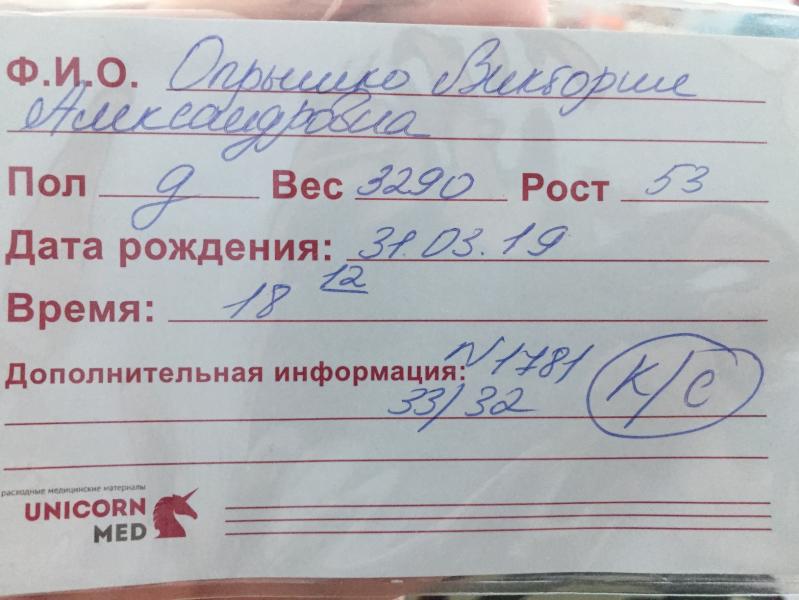 Ф.И.О. Опрышко Виктории
Александровна
Пол д Вес 3290 Рост 53
Дата рождения: 31.03.19
Время: 18 12
Дополнительная информация: N 1781
33/32 К/С
расходные медицинские материалы
UNICORN
MED